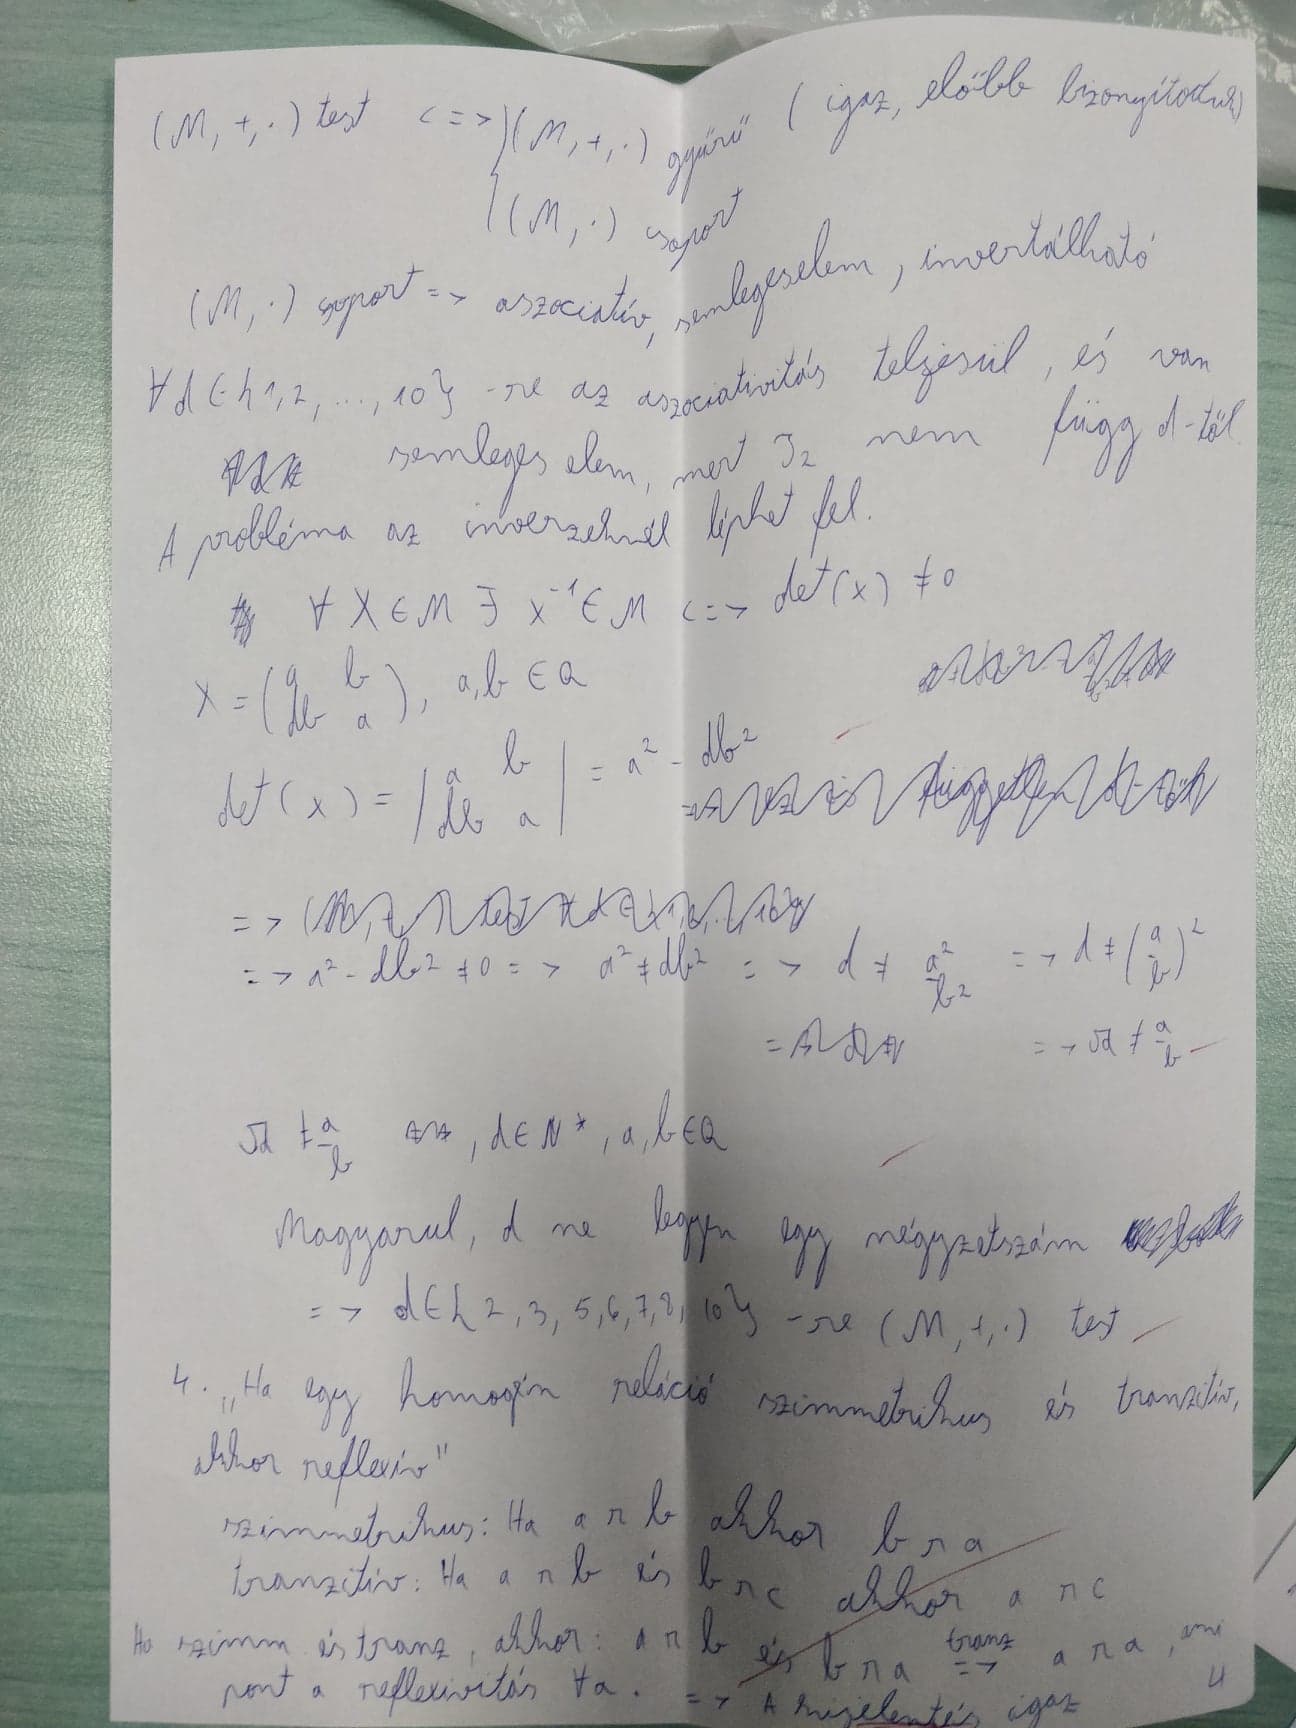 (M, +, ·) test <=> { (M, +, ·) gyűrű (igaz, előbb bizonyítottuk)
(M, ·) csoport
(M, ·) csoport => aszociatív, semlegeselem, invertálható
∀ d ∈ {1, 2, ..., 10} -re az aszociativitás teljesül, és van
semleges elem, mert I₂ nem függ d-től.
A probléma az inverzeknél léphet fel.
∀ X ∈ M ∃ x⁻¹ ∈ M <=> det(x) ≠ 0
X = (a b
db a), a, b ∈ Q
det(x) = |a b
db a| = a² - db²
=> a² - db² ≠ 0 => a² ≠ db² => d ≠ a²/b² => d ≠ (a/b)²
=> √d ≠ a/b
√d ≠ a/b , d ∈ N*, a, b ∈ Q
Magyarul, d ne legyen egy négyzetszám
=> d ∈ {2, 3, 5, 6, 7, 8, 10} -re (M, +, ·) test
4. „Ha egy homogén reláció szimmetrikus és tranzitív,
akkor reflexív"
szimmetrikus: Ha a r b akkor b r a
tranzitív: Ha a r b és b r c akkor a r c
Ha szimm és tranz, akkor: a r b és b r a tranz => a r a, ami
pont a reflexivitás ∀a. => A kijelentés igaz
4